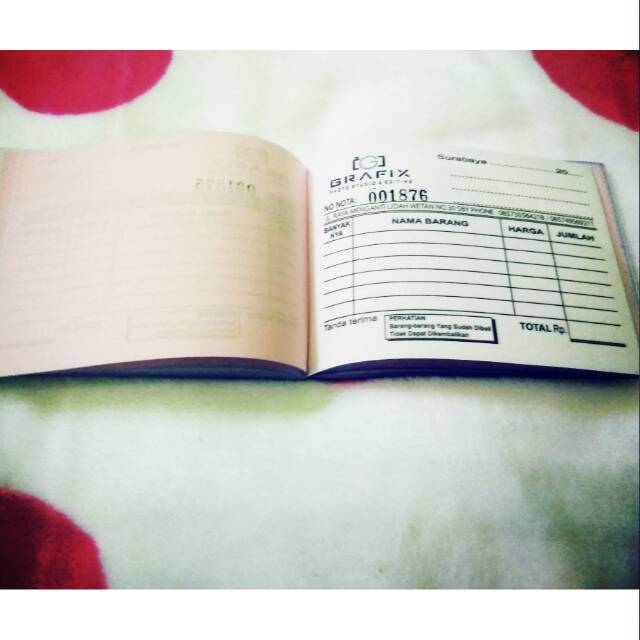 GRAFIX
PHOTO STUDIO & EDITING
Surabaya 20
NO NOTA: 001876
JL. RAYA MENGANTI LIDAH WETAN NO.30 SBY PHONE :
BANYAK NYA NAMA BARANG HARGA JUMLAH
Tanda terima
PERHATIAN
Barang-barang Yang Sudah Dibeli
Tidak Dapat Dikembalikan
TOTAL Rp.
001876